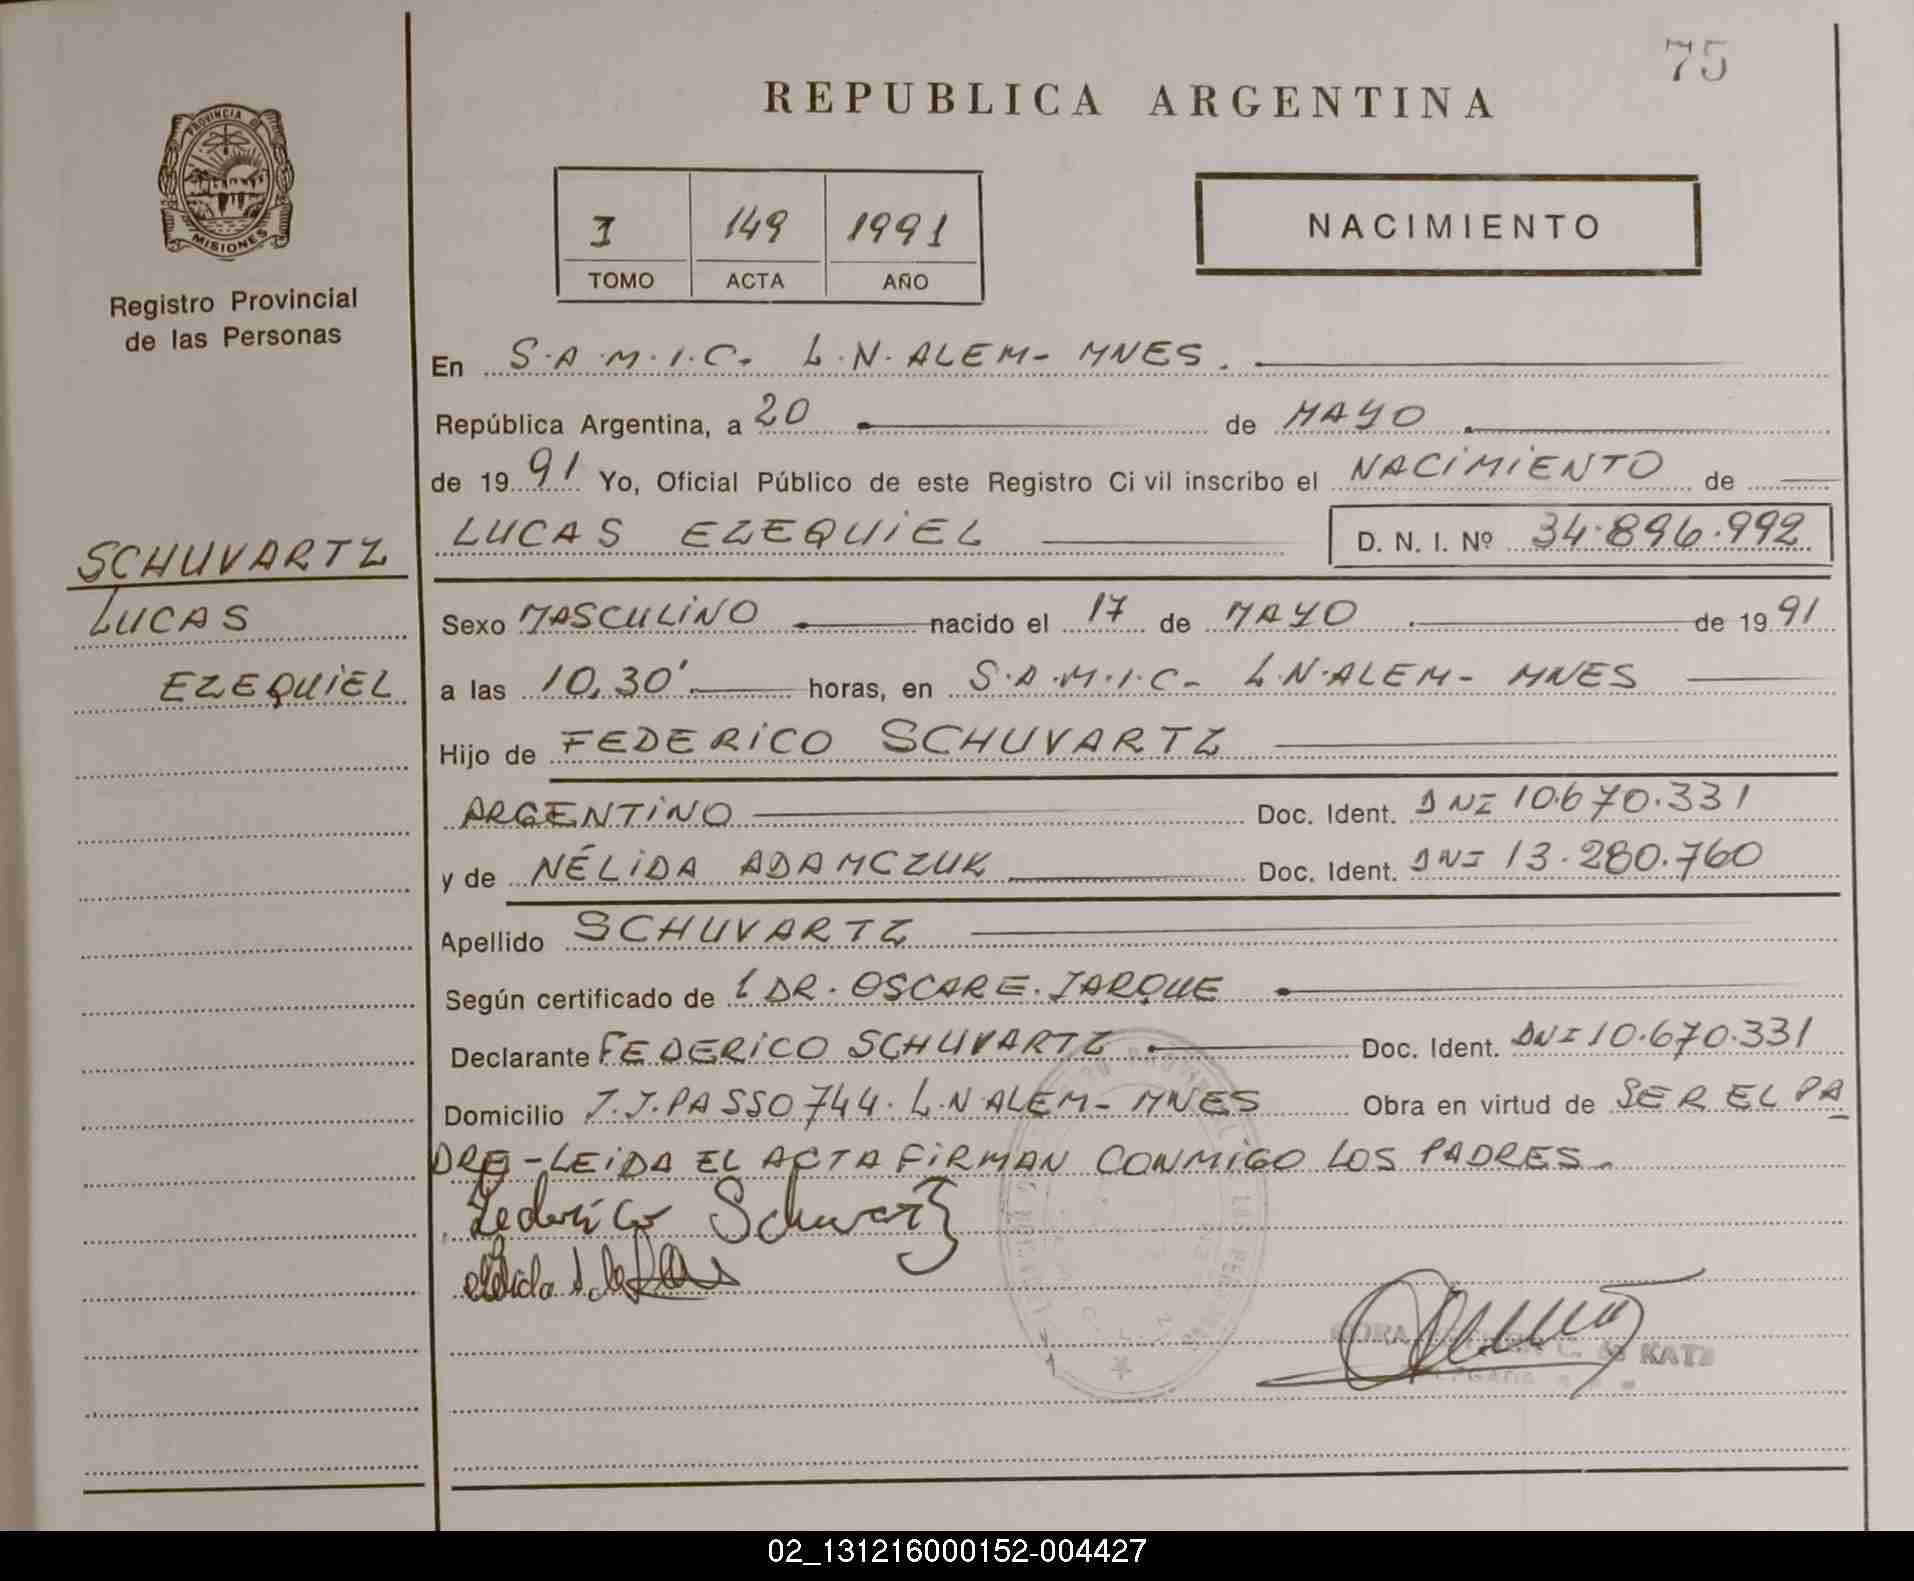 75
REPUBLICA ARGENTINA
PROVINCIA DE
MISIONES
Registro Provincial
de las Personas
I 149 1991
TOMO ACTA AÑO
NACIMIENTO
En S.A.M.I.C. L.N.ALEM- MNES.
República Argentina, a 20 de MAYO
de 1991 Yo, Oficial Público de este Registro Civil inscribo el NACIMIENTO de
LUCAS EZEQUIEL D. N. I. Nº 34.896.992
SCHUVARTZ
LUCAS
EZEQUIEL
Sexo MASCULINO nacido el 17 de MAYO de 1991
a las 10,30' horas, en S.A.M.I.C- L.N.ALEM- MNES
Hijo de FEDERICO SCHUVARTZ
ARGENTINO Doc. Ident. DNI 10.670.331
y de NÉLIDA ADAMCZUK Doc. Ident. DNI 13.280.760
Apellido SCHUVARTZ
Según certificado de DR. OSCAR E. JARQUE
Declarante FEDERICO SCHUVARTZ Doc. Ident. DNI 10.670.331
Domicilio J.J.PASSO 744. L.N ALEM- MNES Obra en virtud de SER EL PA
DRE -LEIDA EL ACTA FIRMAN CONMIGO LOS PADRES.
Federico Schuvartz
C. de KATZ
02_131216000152-004427